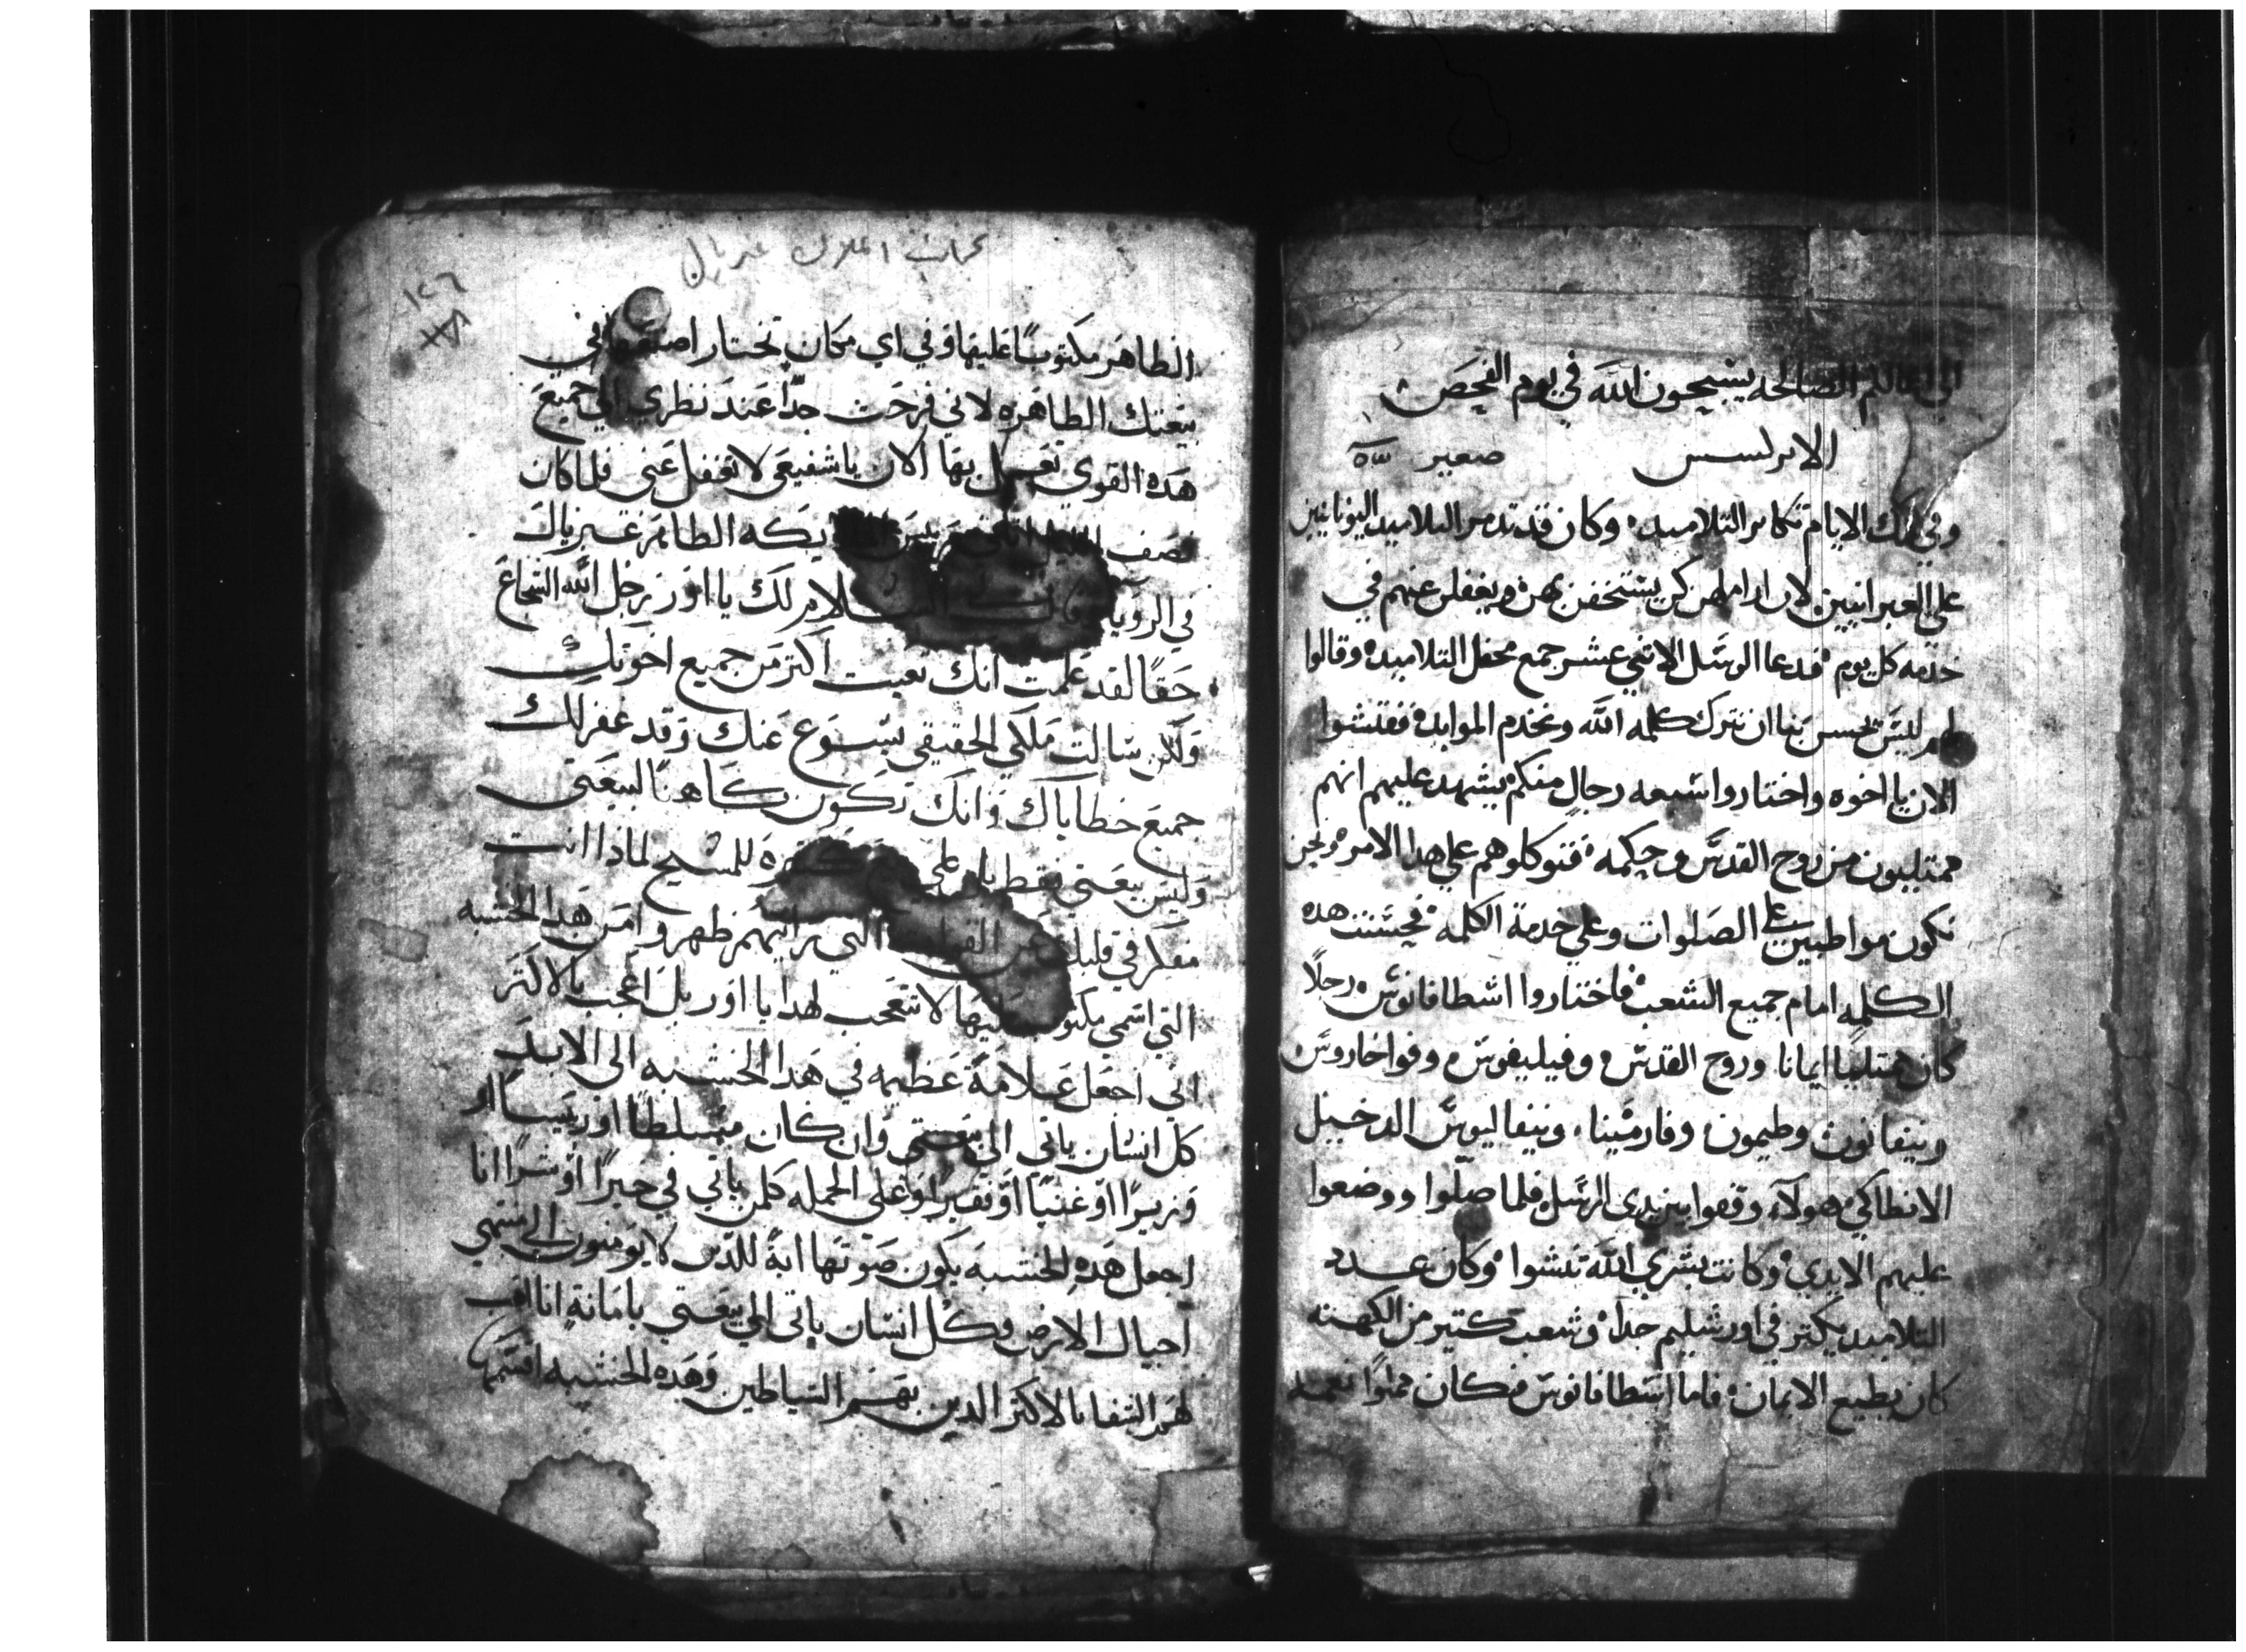 الى اعمالكم الصالحه يسبحون الله في يوم الفحص
الابركسس صعير
وفي تلك الايام تكاثر التلاميد وكان قد تدمر التلاميد اليونانيين
على العبرانيين لان اراملهم كن يستخفن بهن ويغفلن عنهم في
خدمه كل يوم فدعا الرسل الاثني عشر جمع محفل التلاميد وقالوا
لهم ليس يحسن بنا ان نترك كلمه الله ونخدم الموايد ففتشوا
الان يا اخوه واختاروا سبعه رجال منكم يشهد عليهم انهم
ممتليون من روح القدس وحكمه فتوكلوهم على هدا الامر ونحن
نكون مواطبين على الصلوات وعلى خدمة الكلمه فحسنت هده
الكلمه امام جميع الشعب فاختاروا اسطافانوس رجلا
كان ممتليا ايمانا وروح القدس وفيليفوس وفواخاروس
ونيقانون وطيمون وفارمينا ونيقاليوس الدخيل
الانطاكي هولاء وقفوا بين يدي الرسل فلما صلوا ووضعوا
عليهم الايدي وكانت بشري الله تنشوا وكان عدد
التلاميد يكتر في اورشليم جدا وشعب كتير من الكهنه
كان يطيع الايمان فاما اسطافانوس فكان مملوا نعمه
عجائب الملاك غبريال
١٢٦
الطاهر مكتوبا عليها وفي اي مكان تختار اصنعها في
بيعتك الطاهره لاني فرحت جدا عند نظري الى جميع
هده القوي تعمل بها الان يا شفيعي لا تغفل عني فلما كان
نصف يكه الطاهر غبريال
في الرويا السلام لك يا اور رجل الله الشجاع
حقا لقد علمت انك تعبت اكتر من جميع اخوتك
ولكن سالت ملكي الحقيقي يسوع عنك وقد غفر لك
جميع خطاياك وانك تكون كاهنا لبيعتي
وليس بيعتي فقط بل على كتيره للمسيح لماذا انت
مفكر في قلبك التي رايتهم ظهروا من هدا الخشبه
التي اسمي مكتوب عليها لا تتعجب لهدا يا اور بل اعجب بالاكتر
اني اجعل علامة عظيمه في هدا الخشبه الى الابد
كل انسان ياتي الى بيعتي وان كان متسلطا او رييسا او
وزيرا او غنيا او فقيرا وعلى الجمله كلمن ياتي في خيرا او شرا انا
اجعل هده الخشبه يكون صوتها اية للدين لا يومنون الى منتهي
اجيال الارض وكل انسان ياتي الى بيعتي بامانة انا اهب
لهم الشفا بالاكتر الدين بهم الشياطين وهده الخشبه